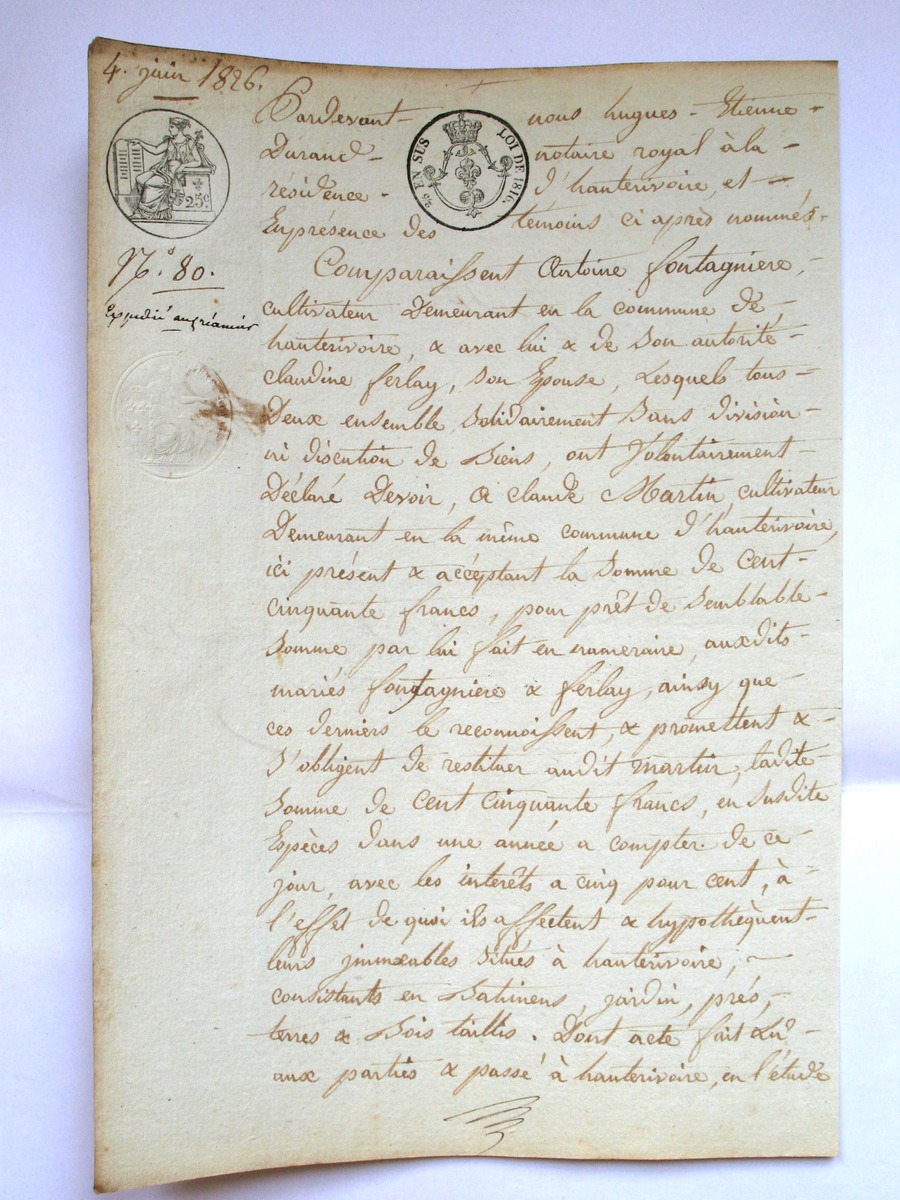 4. juin 1826.
Pardevant nous hugues - Etienne -
Durand - notaire royal à la -
résidence - d'hauterivoire, et -
Enprésence des témoins ci après nommés -
25c
2/10 EN SUS LOI DE 1816.
No. 80.
Expédié au créancier
Comparaissent Antoine fontagniere,
cultivateur Demeurant en la commune de
hauterivoire, & avec lui & de son autorité -
claudine ferlay, son Epouse, Lesquels tous -
Deux ensemble solidairement sans division -
ni discution de Biens, ont Volontairement -
Déclaré Devoir, A claude Martin, cultivateur
Demeurant en la même commune d'hauterivoire,
ici présent & accéptant la somme de Cent -
cinquante francs, pour prêt de semblable -
somme par lui fait en numeraire, auxdits -
mariés fontagniere & ferlay, ainsy que -
ces derniers le reconnoissent, & promettent & -
s'obligent de restituer audit martin, ladite
somme de cent cinquante francs, en susdite
Espèces dans une année a compter de ce -
jour, avec les interêts a cinq pour cent, à -
l'effet de quoi ils affectent & hypothèquent -
leurs immeubles situés à hauterivoire, -
consistants en Batimens, jardin, prés, -
terres & Bois taillis. Dont acte fait Lu -
aux parties & passé à hauterivoire, en l'étude